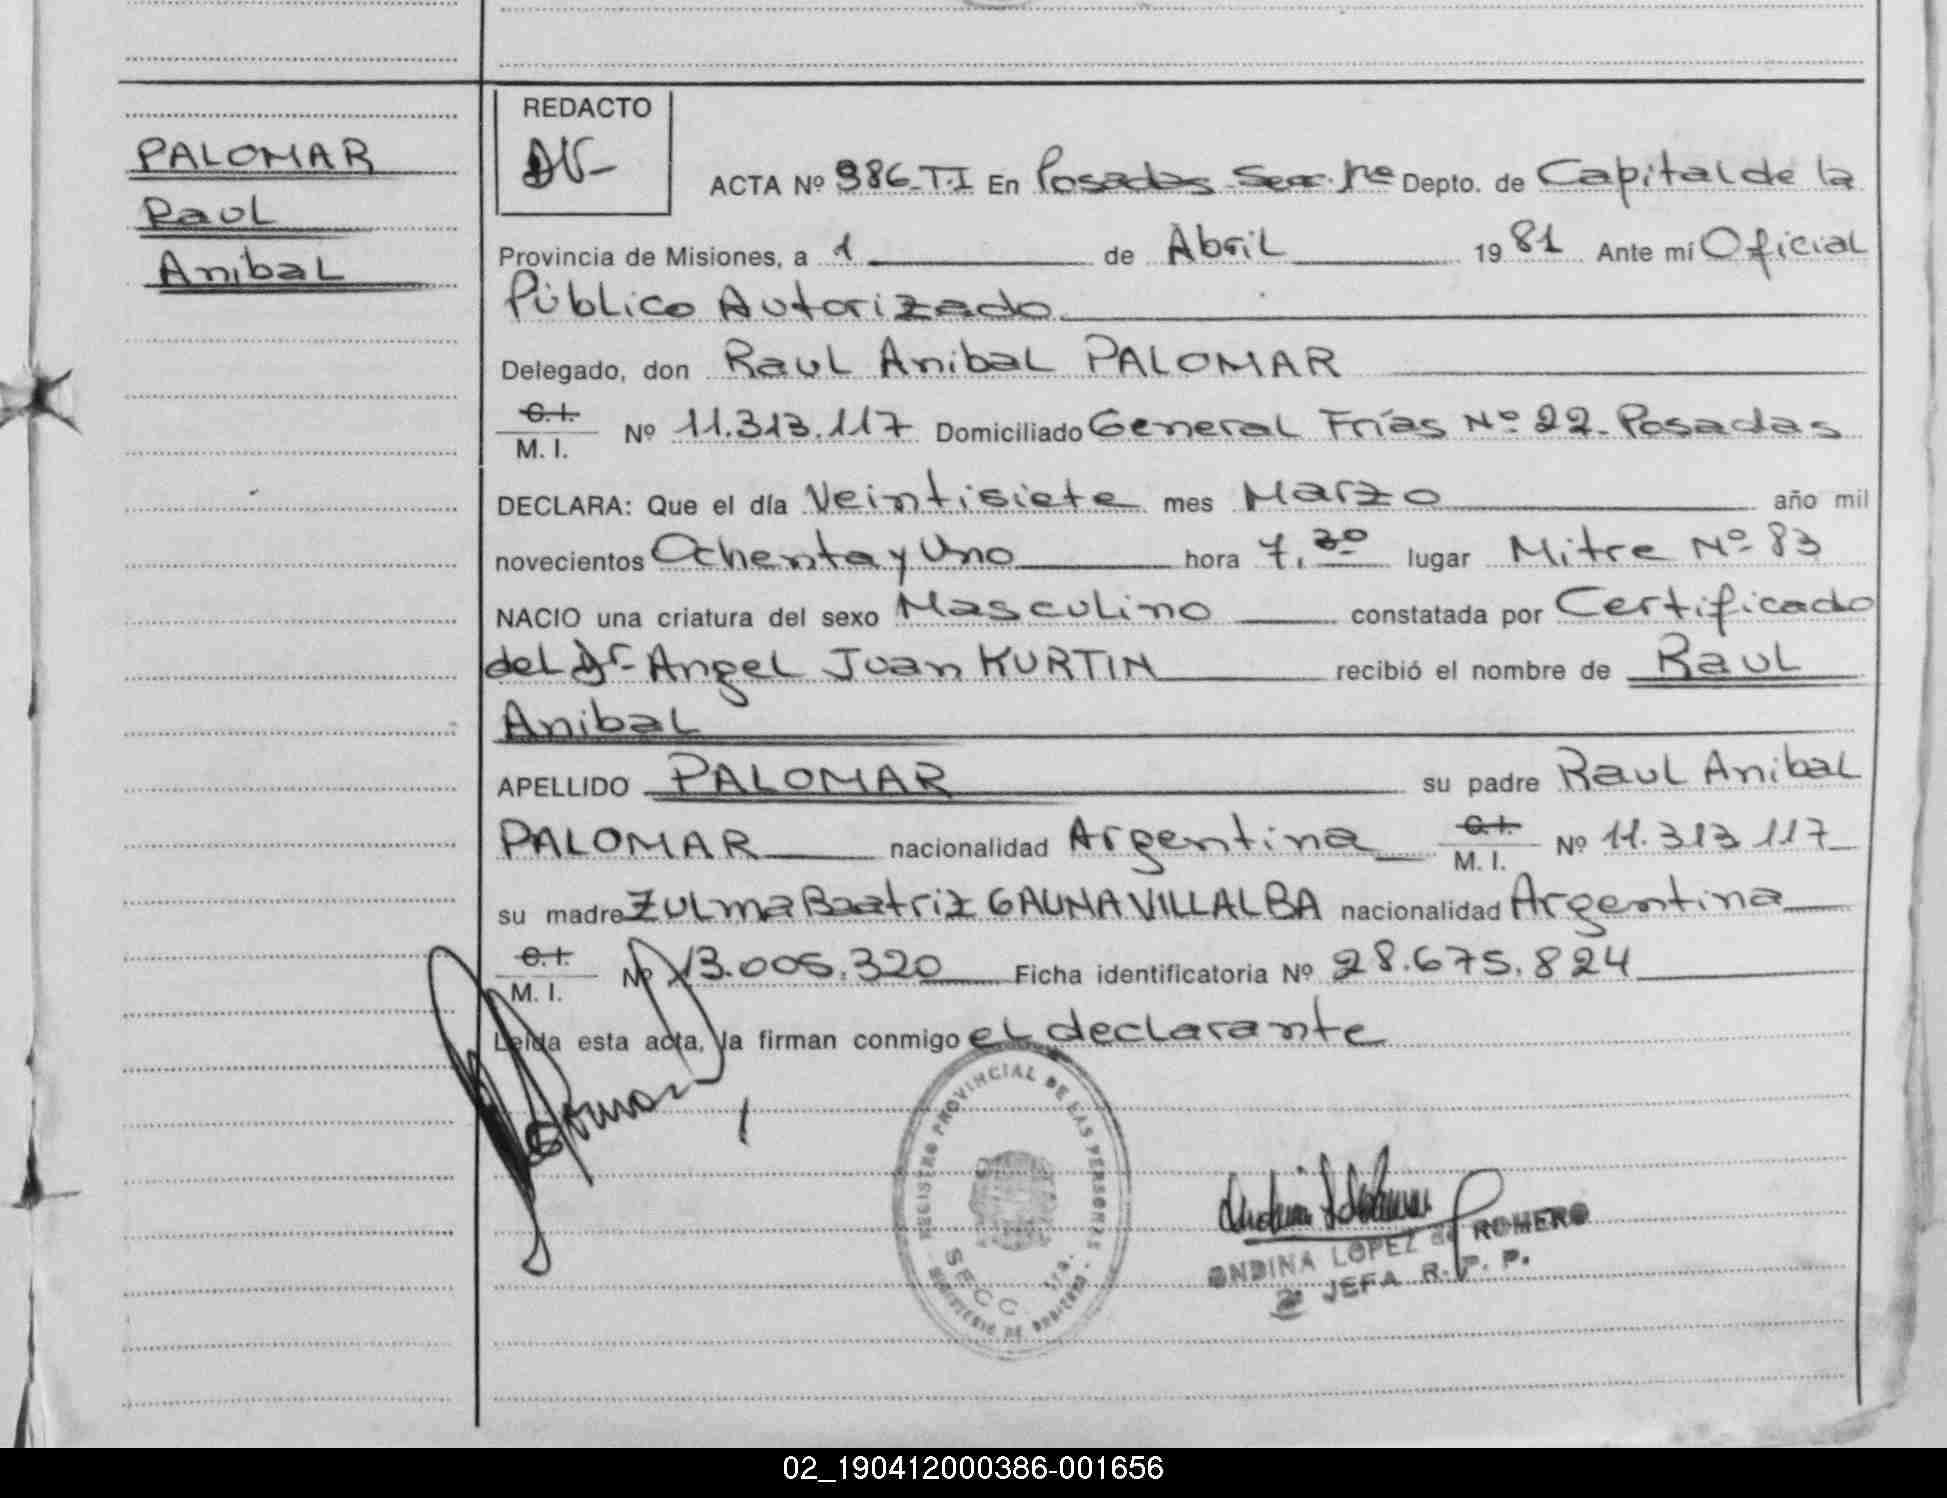 PALOMAR
Raul
Anibal
REDACTO
ACTA Nº 986-T.I En Posadas Secc. 1ra Depto. de Capital de la
Provincia de Misiones, a 1 de Abril 1981 Ante mí Oficial
Público Autorizado
Delegado, don Raul Anibal PALOMAR
C.I.
M. I. Nº 11.313.117 Domiciliado General Frías Nº 22. Posadas
DECLARA: Que el día Veintisiete mes Marzo año mil
novecientos Ochenta y Uno hora 7,30 lugar Mitre Nº 83
NACIO una criatura del sexo Masculino constatada por Certificado
del Dr. Angel Juan KURTIN recibió el nombre de Raul
Anibal
APELLIDO PALOMAR su padre Raul Anibal
PALOMAR nacionalidad Argentina C.I. M. I. Nº 11.313.117
su madre Zulma Beatriz GAUNA VILLALBA nacionalidad Argentina
C.I.
M. I. Nº 13.005.320 Ficha identificatoria Nº 28.675.824
Leída esta acta, la firman conmigo el declarante
REGISTRO PROVINCIAL DE LAS PERSONAS
SECC. 1ra.
MINISTERIO DE GOBIERNO
ONDINA LOPEZ de ROMERO
JEFA R. P. P.
02_190412000386-001656